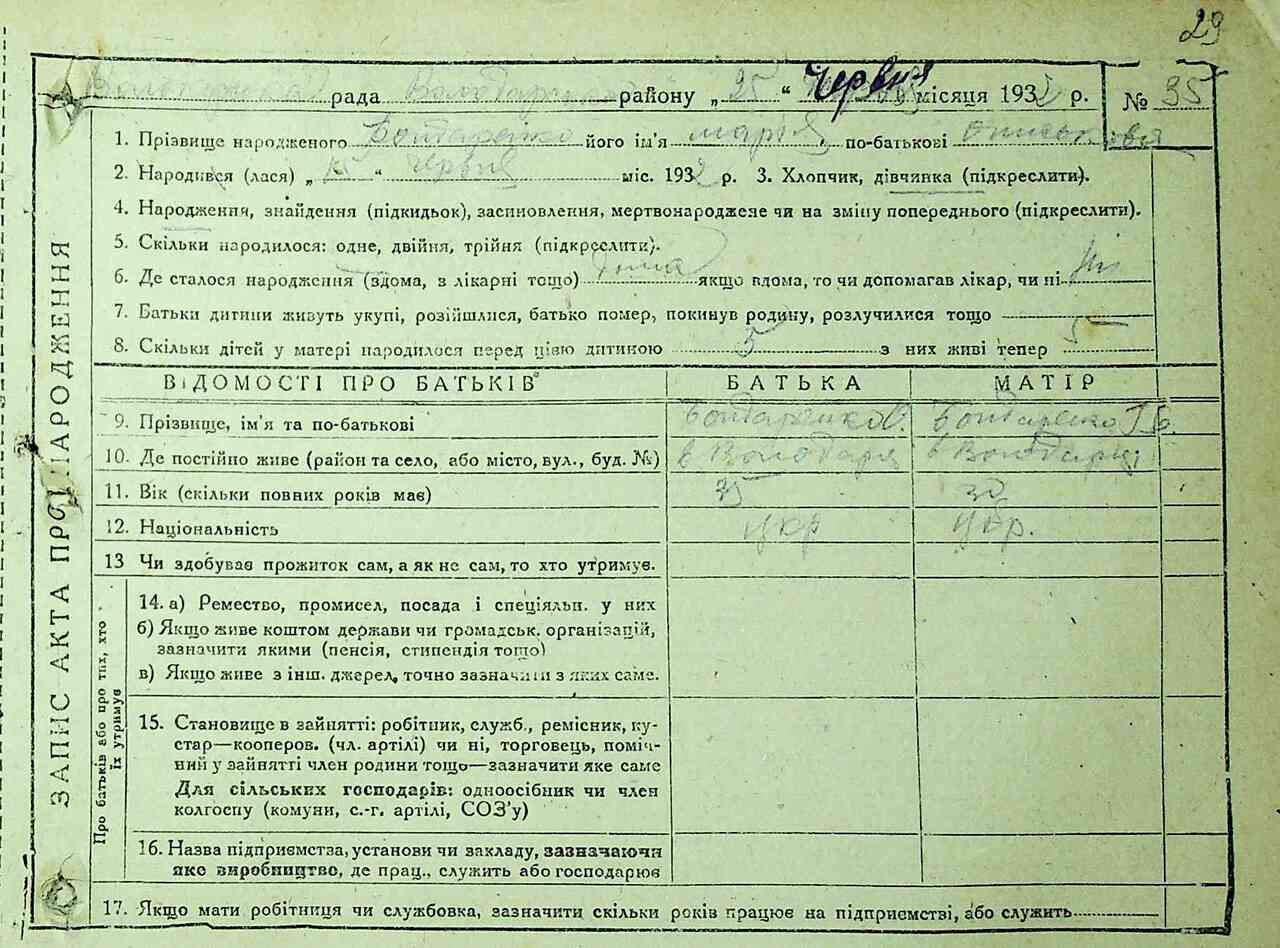 29
рада Володарського району „ 25 “ Червня місяця 1932 р. № 35
1. Прізвище народженого Бондаренко його ім'я Марія, по-батькові
2. Народився (лася) „ “ червня міс. 1932 р. 3. Хлопчик, дівчинка (підкреслити).
4. Народження, знайдення (підкидьок), засиновлення, мертвонароджене чи на зміну попереднього (підкреслити).
5. Скільки народилося: одне, двійня, трійня (підкреслити).
6. Де сталося народження (вдома, в лікарні тощо) дома якщо вдома, то чи допомагав лікар, чи ні ні
7. Батьки дитини живуть укупі, розійшлися, батько помер, покинув родину, розлучилися тощо
8. Скільки дітей у матері народилося перед цією дитиною 5 з них живі тепер 5
ВІДОМОСТІ ПРО БАТЬКІВ БАТЬКА МАТІР
9. Прізвище, ім'я та по-батькові Бондаренко О. Бондаренко
10. Де постійно живе (район та село, або місто, вул., буд. №) в Володарці в Володарці
11. Вік (скільки повних років має) 35 30
12. Національність укр укр.
13 Чи здобуває прожиток сам, а як не сам, то хто утримує.
14. а) Ремество, промисел, посада і спеціяльн. у них
б) Якщо живе коштом держави чи громадськ. організацій,
зазначити якими (пенсія, стипендія тощо)
в) Якщо живе з інш. джерел, точно зазначити з яких саме.
15. Становище в зайнятті: робітник, служб., ремісник, ку-
стар—кооперов. (чл. артілі) чи ні, торговець, поміч-
ний у зайнятті член родини тощо—зазначити яке саме
Для сільських господарів: одноосібник чи член
колгоспу (комуни, с.-г. артілі, СОЗ'у)
16. Назва підприємства, установи чи закладу, зазначаючи
яке виробництво, де прац., служить або господарює
17. Якщо мати робітниця чи службовка, зазначити скільки років працює на підприємстві, або служить
ЗАПИС АКТА ПРО НАРОДЖЕННЯ
Про батьків або про тих, хто
їх утримує